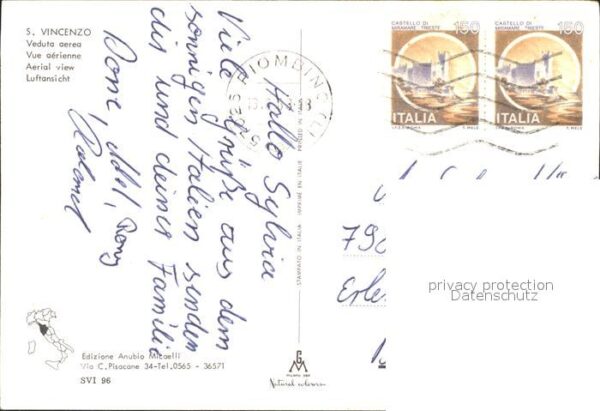 S. VINCENZO
Veduta aerea
Vue aérienne
Aerial view
Luftansicht
CASTELLO DI
MIRAMARE TRIESTE
150
ITALIA
I.P.Z.S. ROMA
T. MELE
CASTELLO DI
MIRAMARE TRIESTE
150
ITALIA
I.P.Z.S. ROMA
T. MELE
PIOMBINO
Hallo Sylvia
Viele Grüße aus dem
sonnigen Italien senden
dir und deiner Familie
STAMPATO IN ITALIA - IMPRIMÉ EN ITALIE - PRINTED IN ITALY
790
Erle
privacy protection
Datenschutz
Edizione Anubio Micaelli
Via C. Pisacane 34-Tel. 0565 - 36571
SVI 96
G
M
Natural colorvera